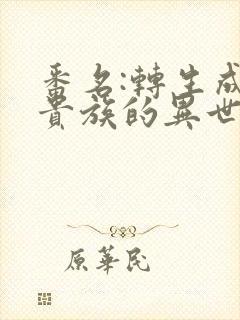 番名:轉生成
貴族的異世
原華民